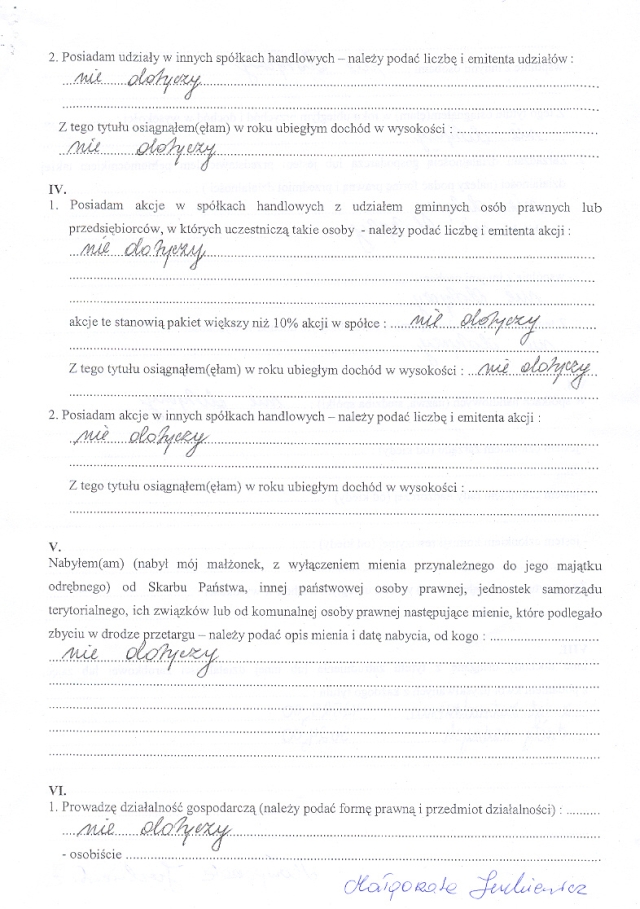 2. Posiadam udziały w innych spółkach handlowych – należy podać liczbę i emitenta udziałów :
nie dotyczy
Z tego tytułu osiągnąłem(ęłam) w roku ubiegłym dochód w wysokości :
nie dotyczy
IV.
1. Posiadam akcje w spółkach handlowych z udziałem gminnych osób prawnych lub
przedsiębiorców, w których uczestniczą takie osoby - należy podać liczbę i emitenta akcji :
nie dotyczy
akcje te stanowią pakiet większy niż 10% akcji w spółce : nie dotyczy
Z tego tytułu osiągnąłem(ęłam) w roku ubiegłym dochód w wysokości : nie dotyczy
2. Posiadam akcje w innych spółkach handlowych – należy podać liczbę i emitenta akcji :
nie dotyczy
Z tego tytułu osiągnąłem(ęłam) w roku ubiegłym dochód w wysokości :
V.
Nabyłem(am) (nabył mój małżonek, z wyłączeniem mienia przynależnego do jego majątku
odrębnego) od Skarbu Państwa, innej państwowej osoby prawnej, jednostek samorządu
terytorialnego, ich związków lub od komunalnej osoby prawnej następujące mienie, które podlegało
zbyciu w drodze przetargu – należy podać opis mienia i datę nabycia, od kogo :
nie dotyczy
VI.
1. Prowadzę działalność gospodarczą (należy podać formę prawną i przedmiot działalności) :
nie dotyczy
- osobiście
Małgorzata